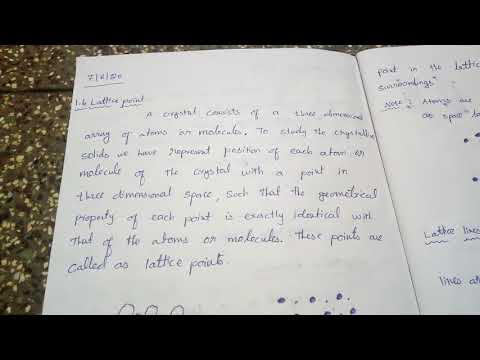 7/8/20
1.6 Lattice point
A crystal consists of a three dimensional
array of atoms or molecules. To study the crystalline
solids we have represent position of each atom or
molecule of the crystal with a point in
three dimensional space, such that the geometrical
property of each point is exactly identical with
that of the atoms or molecules. These points are
called as lattice points.
point in the lattice
surroundings.
Note: Atoms are
as space
Lattice lines
lines